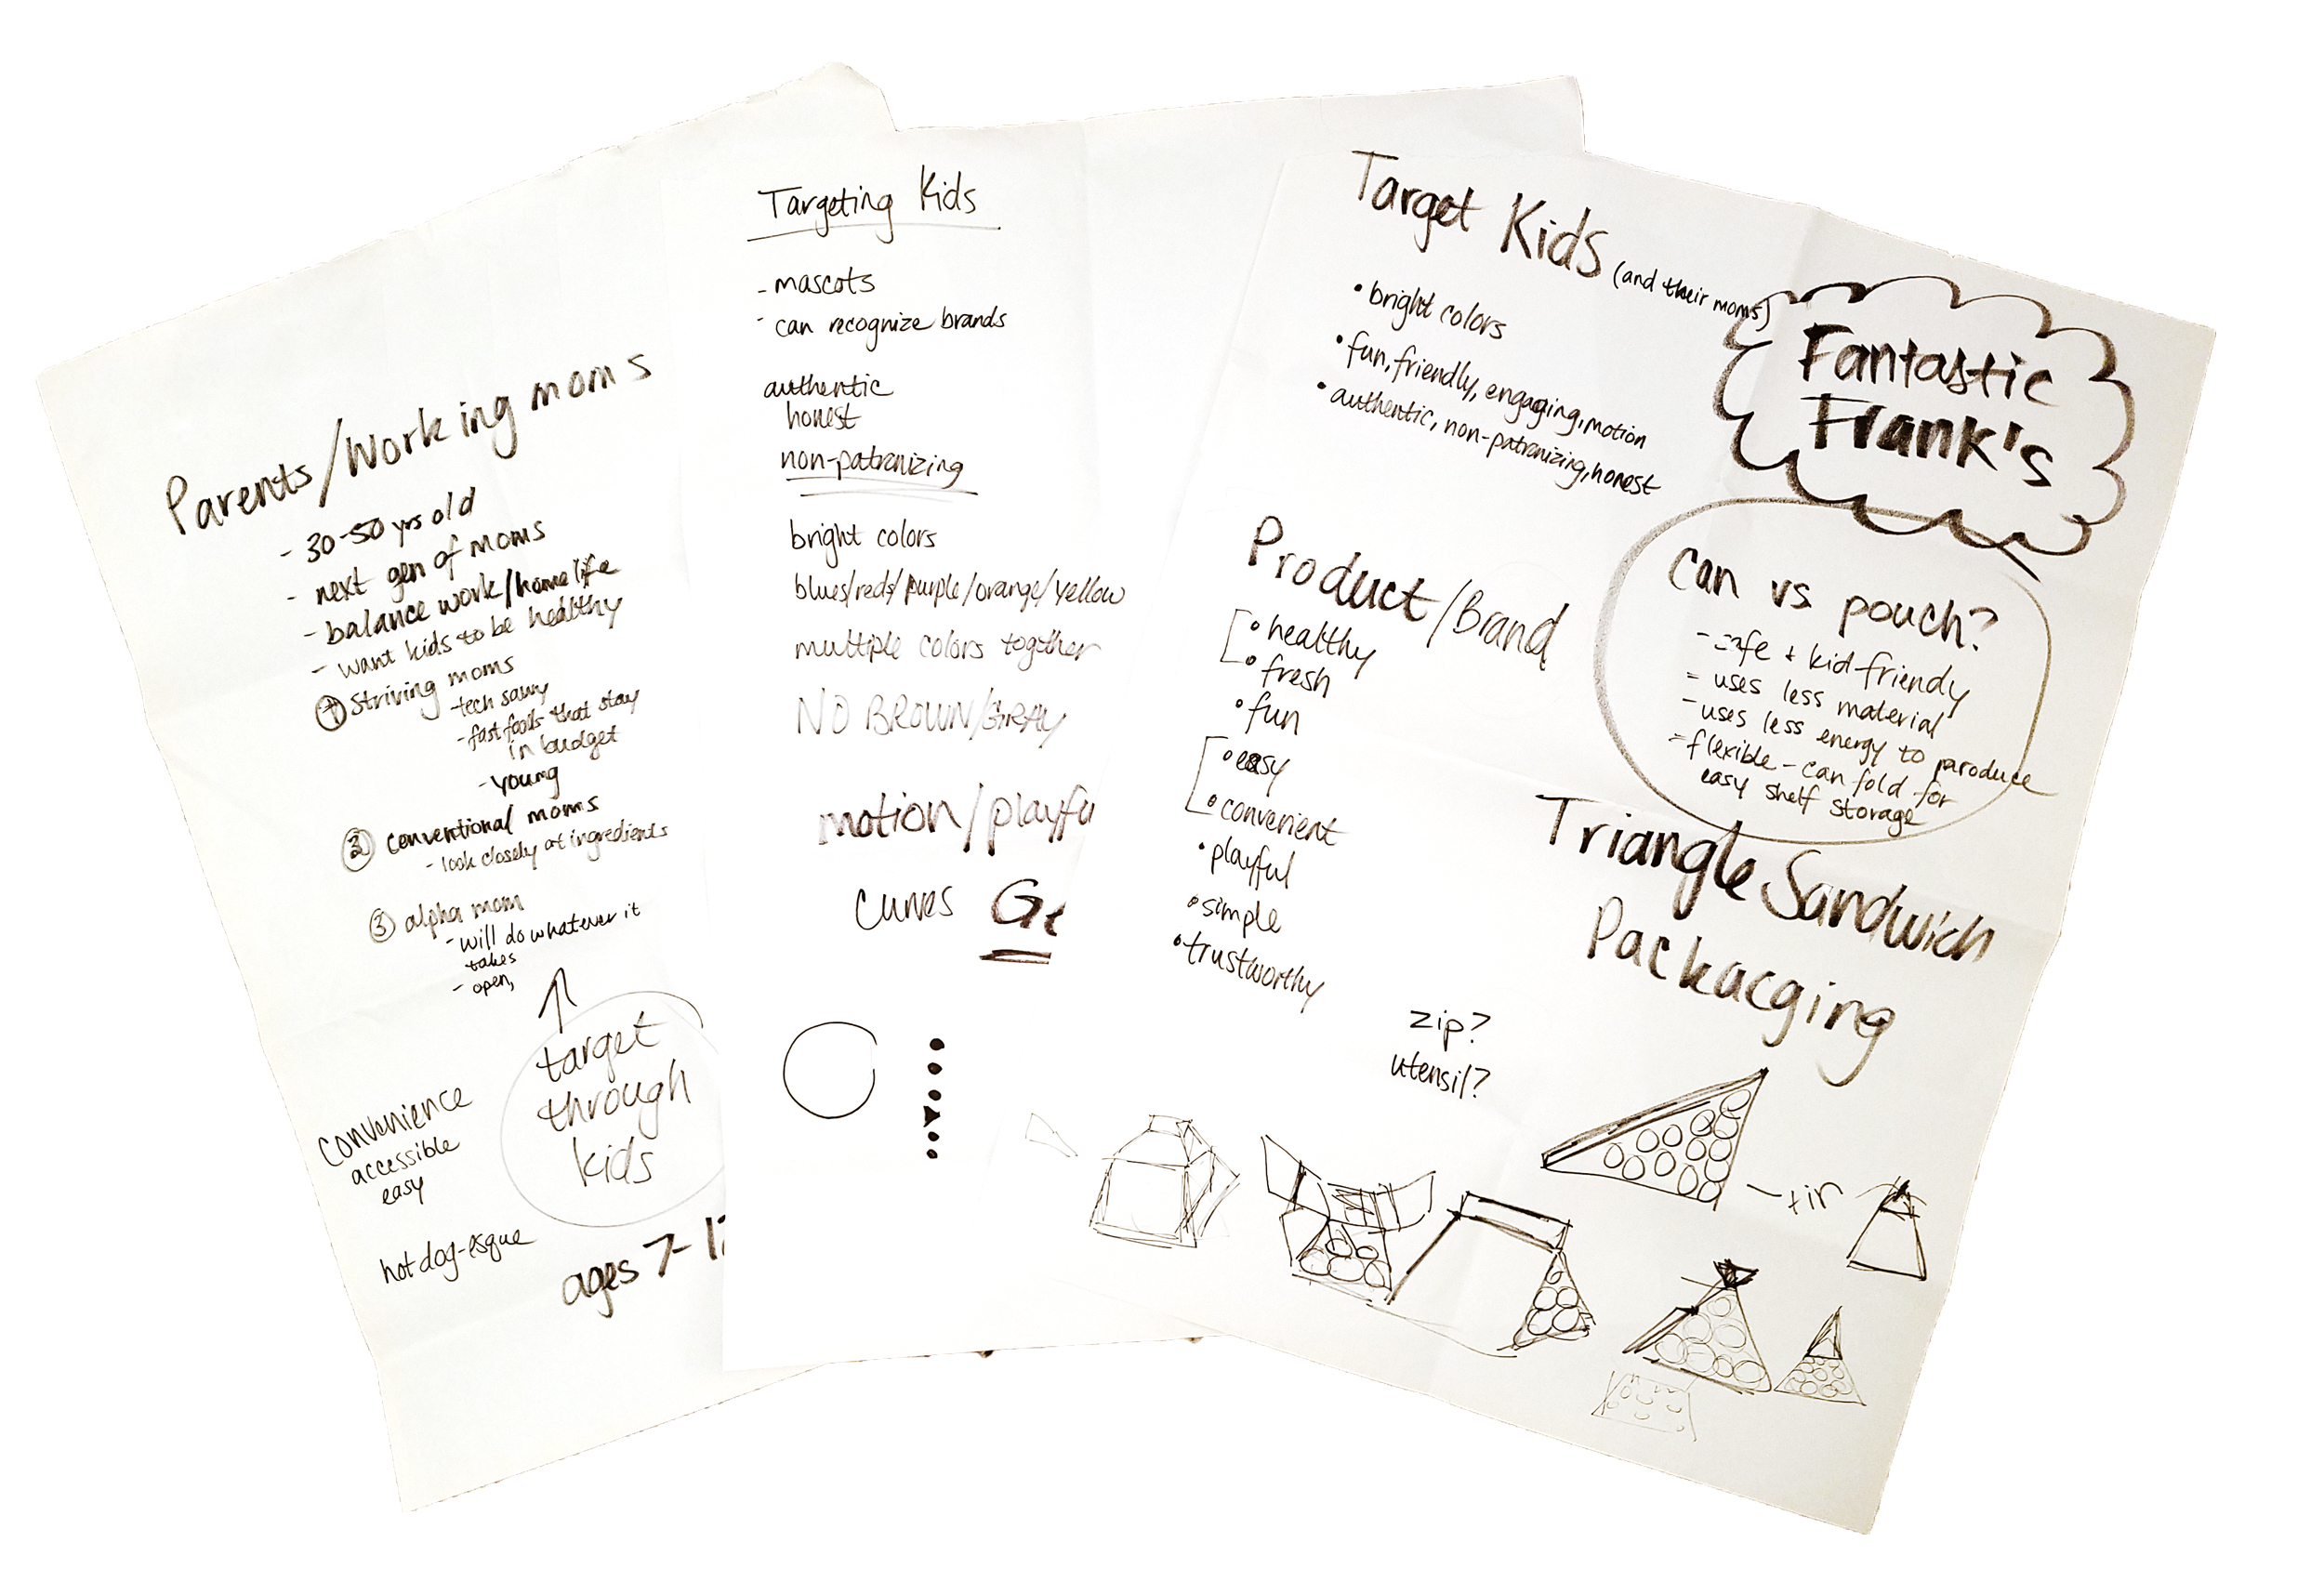 Parents/Working moms
- 30-50 yrs old
- next gen of moms
- balance work/home life
- want kids to be healthy
① Striving moms
- tech savvy
- fast foods that stay
in budget
- young
② conventional moms
- look closely at ingredients
③ alpha mom
- will do whatever it
takes
- open,
target
through
kids
convenience
accessible
easy
hot dog-esque
ages 7-12
Targeting Kids
- mascots
- can recognize brands
authentic
honest
non-patronizing
bright colors
blues/reds/purple/orange/yellow
multiple colors together
NO BROWN/GRAY
motion/playfu
curves
Target Kids (and their moms)
• bright colors
• fun, friendly, engaging, motion
• authentic, non-patronizing, honest
Fantastic
Frank's
Product/Brand
• healthy
• fresh
• fun
• easy
• convenient
• playful
• simple
• trustworthy
can vs pouch?
- safe + kid friendly
- uses less material
- uses less energy to produce
- flexible - can fold for
easy shelf storage
Triangle Sandwich
Packacging
zip?
utensil?